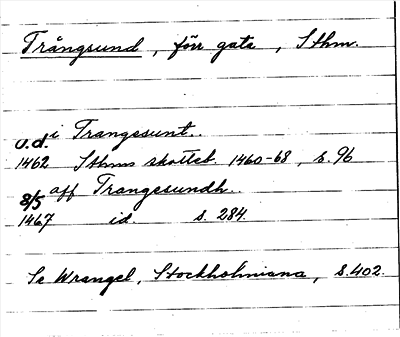 Trångsund, förr gata, Sthm.
u.d. i Trangesunt..
1462 Sthms skotteb. 1460-68, s. 96
8/5 aff Trangesundh..
1467 id s. 284.
Se Wrangel, Stockholmiana, s. 402.